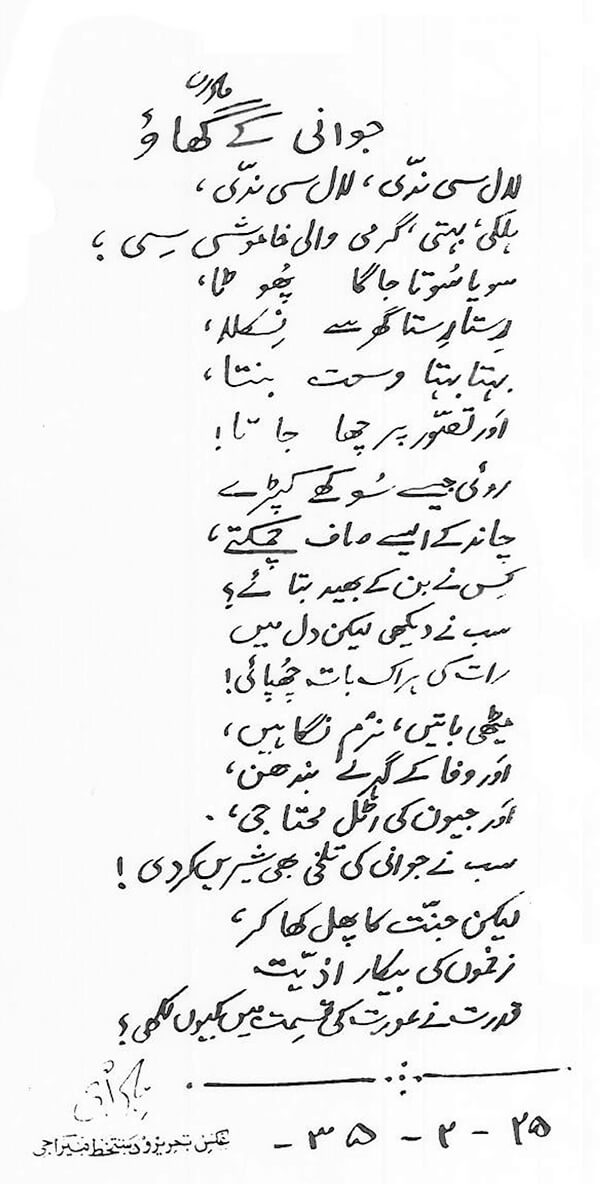 جوانی کے گھاؤ
لال سی ندّی، لال سی ندّی،
ہلکی، بہتی، گرمی والی خاموشی سی؛
سویا سُوتا جاگا پھُوٹا،
رِستا رِستا گھر سے نِکلا،
بہتا بہتا وسعت بنتا،
اور تصّور پر چھا جاتا!
روئی جیسے سُوکھے کپڑے
چاند کے ایسے صاف چمکتے،
کِس نے بن کے بھید بتائے؟
سب نے دیکھی لیکن دل میں
رات کی ہر اک بات چھُپائی!
میٹھی باتیں، نرم نگاہیں،
اور وفا کے گہرے بندھن،
اور جیون کی اٹل محتاجی،
سب نے جوانی کی تلخی بھی شیریں کر دی!
لیکن جنّت کا پھل کھا کر،
زخموں کی بیکار اذیّت
قدرت نے عورت کی قسمت میں کیوں لکھی؟
میراجی
۲۵ - ۲ - ۳۵ -
عکسِ تحریر و دستخط میراجی